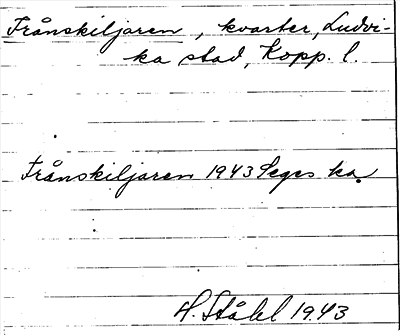 Frånskiljaren, kvarter, Ludvi-
ka stad, Kopp. l.
Frånskiljaren 1943 Seges ka.
H. Ståhl 1943